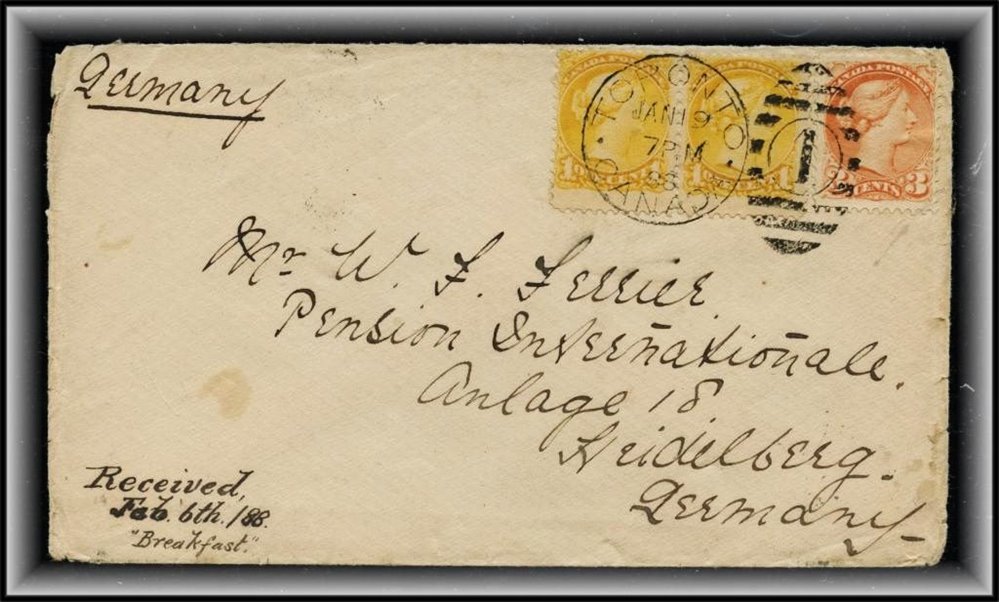 Germany
CANADA POSTAGE
TORONTO
JAN 19
7 PM
88
CANADA
1
ONE CENT 1
1
3 CENTS 3
Mr W. F. Ferrier
Pension Internationale.
Anlage 18.
Heidelberg.
Germany
Received,
Feb. 6th. /88.
"Breakfast."